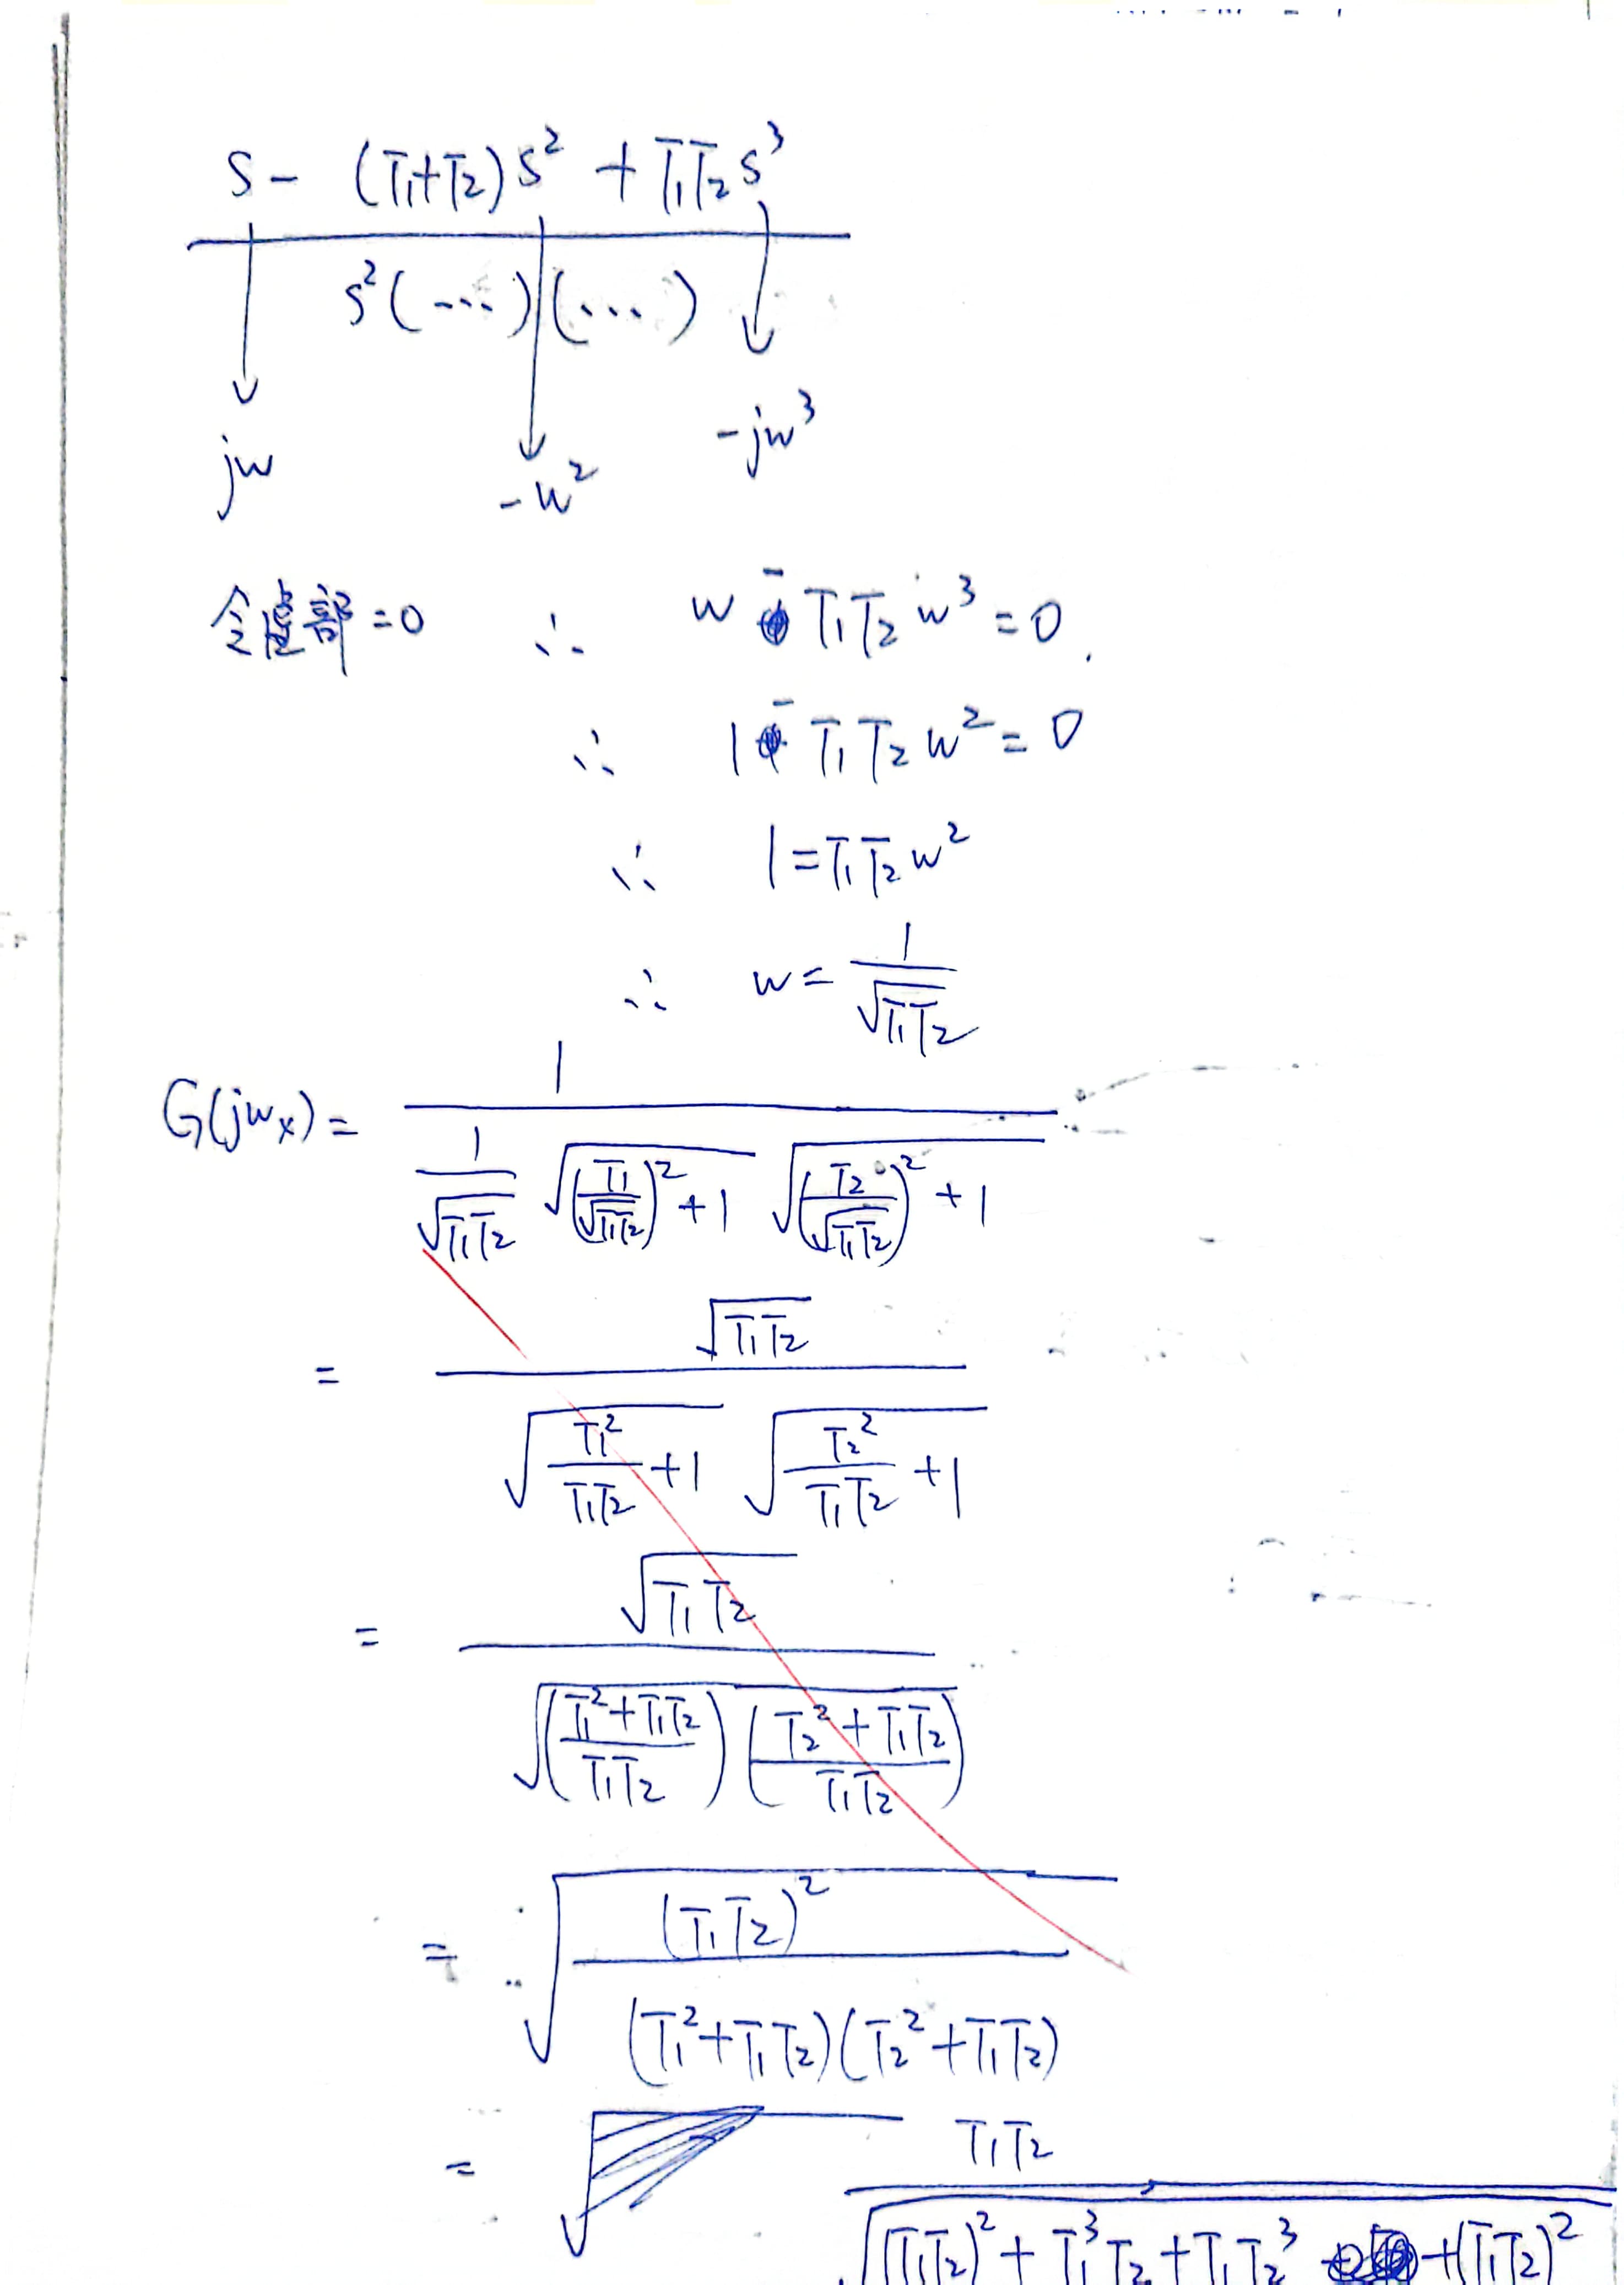 s - (T₁+T₂)s² + T₁T₂s³
s²(...)(...)
jw -w² -jw³
令虚部=0 ∴ w - T₁T₂w³ = 0.
∴ 1 - T₁T₂w² = 0
∴ 1 = T₁T₂w²
∴ w = 1/√(T₁T₂)
G(jwₓ) = 1/((1/√(T₁T₂)) √((T₁/√(T₁T₂))²+1) √((T₂/√(T₁T₂))²+1))
= √(T₁T₂)/(√(T₁²/(T₁T₂)+1) √(T₂²/(T₁T₂)+1))
= √(T₁T₂)/√(((T₁²+T₁T₂)/(T₁T₂))((T₂²+T₁T₂)/(T₁T₂)))
= √((T₁T₂)²/((T₁²+T₁T₂)(T₂²+T₁T₂)))
= T₁T₂/√((T₁T₂)²+T₁³T₂+T₁T₂³+(T₁T₂)²)